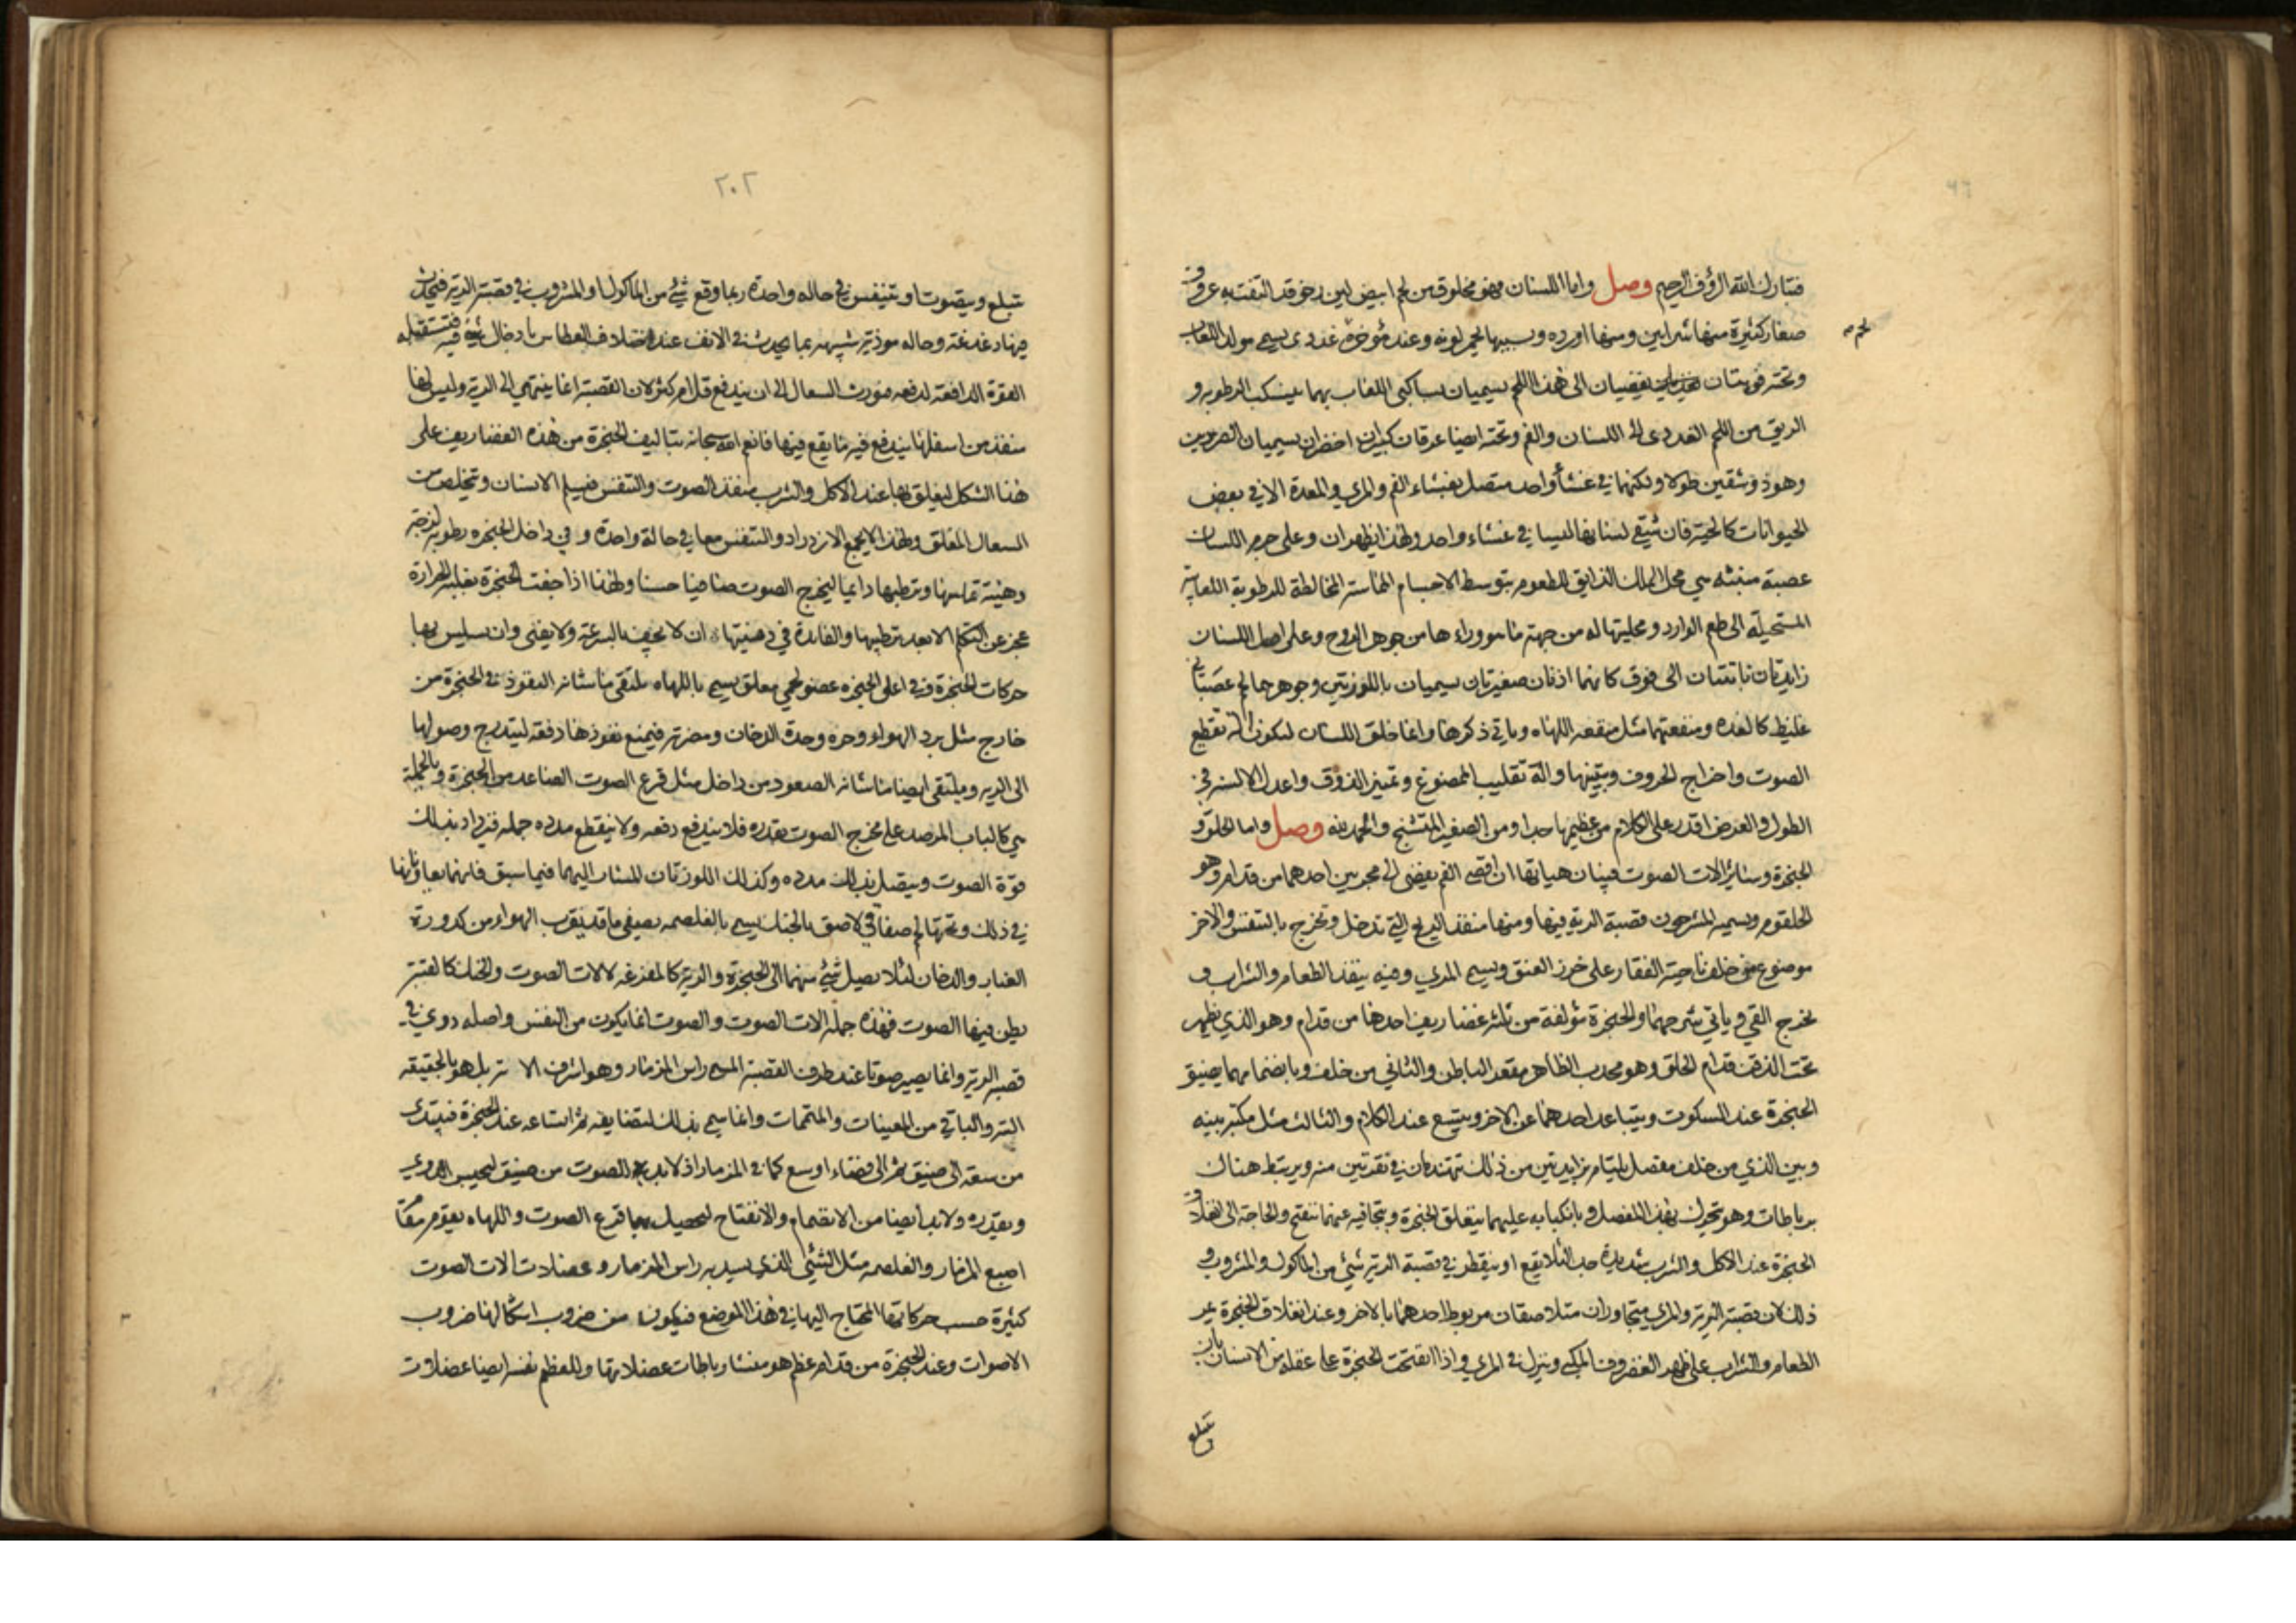 فتبارك الله الرؤف الرحيم وصل واما اللسان فهو مخلوق من لحم ابيض لين رخو قد التفت به عروق
صغار كثيرة منها شرايين ومنها اورده وبسببها يحمر لونه وعند مؤخره لحم غددى يسمى مولد اللعاب
وتحته فوهتان يفضيان الى هذا اللحم يسميان ساكبى اللعاب بهما ينسكب الرطوبه و
الريق من اللحم الغددى الى اللسان والفم وتحته ايضا عرقان كبيران اخضران يسميان الصردين
وهو ذو شقين طولا ولكنهما في غشاء واحد متصل بغشاء الفم والمرى والمعدة الا في بعض
الحيوانات كالحية فان شقي لسانها ليسا في غشاء واحد ولهذا يظهران وعلى جرم اللسان
عصبة منبثه هي محل الملك الذايق للطعوم بتوسط الاجسام المماسة المخالطة للرطوبة اللعابية
المستحيلة الى طعم الوارد ومحليتها له من جهة ما هو وراءها من جوهر الروح وعلى اصل اللسان
زايدتان ناتئتان الى فوق كانهما اذنان صغيرتان يسميان باللوزتين وجوهرهما لحم عصباني
غليظ كالغده ومنفعتهما مثل منفعه اللهاه وياتي ذكرها وانما خلق اللسان ليكون الة تقطيع
الصوت واخراج الحروف وتبيينها والة تقليب الممضوغ وتمييز الذوق واعدل الالسنه في
الطول والعرض اقدر على الكلام من عظيمها جدا ومن الصغير المتشنج والحمد لله وصل واما الحلق و
الحنجرة وسائر الات الصوت فبيان هياتها ان اقصى الفم يفضى الى مجريين احدهما من قدام وهو
الحلقوم ويسميه المشرحون قصبة الرية فيها ومنها منفذ الريح التي تدخل وتخرج بالتنفس والاخر
موضوع من خلف ناحية الفقار على خرز العنق ويسمى المري وفيه ينفذ الطعام والشراب و
يخرج القي وياتي شرحهما والحنجرة مؤلفة من ثلثة غضاريف احدها من قدام وهو الذي يظهر
تحت الذقن قدام الحلق وهو محدب الظاهر مقعر الباطن والثاني من خلف وبانضمامهما يضيق
الحنجرة عند السكوت ويتباعد احدهما عن الاخر ويتسع عند الكلام والثالث مثل مكبة بينه
وبين الذي من خلف مفصل يلتئام بزايدتين من ذلك تهتندمان في نقرتين منه ويرتبط هناك
برباطات وهو يتحرك بهذا المفصل وبانكبابه عليهما ينغلق الحنجرة وبتجافيه عنهما تنفتح والحاجة الى انغلاق
الحنجرة عند الاكل والشرب شديدة جدا لئلا يقع او يقطر في قصبة الرية شئ من الماكول والمشروب و
ذلك لان قصبة الرية والمري متجاوران متلاصقان مربوط احدهما بالاخر وعند انغلاق الحنجرة يمر
الطعام والشراب على ظهر الغضروف المكبي وينزل في المري واذا انفتحت الحنجرة على غفلة من الانسان بان
يتبلع
يتبلع ويتصوت او يتنفس في حاله واحدة ربما وقع شئ من الماكول والمشروب في قصبة الرية فيحدث
فيها دغدغة وحاله موذية شبيهة بما يحدث في الانف عند اجتلاب العطاس بادخال شئ فيه فتستقبله
القوة الدافعة لدفعه فيورث السعال الى ان يندفع قل ام كثر لان القصبة انما ينتهي الى الرية وليس لها
منفذ من اسفلها يندفع فيه ما يقع فيها فانعم الله سبحانه بتاليف الحنجرة من هذه الغضاريف على
هذا الشكل لينغلق بها عند الاكل والشرب منفذ الصوت والتنفس فيسلم الانسان ويتخلص من
السعال المقلق ولهذا لا يجمع الازدراد والتنفس معا في حالة واحدة و في داخل الحنجره رطوبة لزجة
دهنية تملسها وترطبها دائما ليخرج الصوت صافيا حسنا ولهذا اذا جفت الحنجرة بغلبة الحرارة
عجز عن التكلم الا بعد ترطيبها والفايدة في دهنيتها ان لا يجف بالسرعة ولا يفنى وان يسلس بها
حركات الحنجرة وفي اعلى الحنجره عضو لحمي معلق يسمى باللهاه يلتقى ما شانه النفوذ في الحنجرة من
خارج مثل برد الهواء وحره وحدة الدخان ومضرته فيمنع نفوذها دفعة ليتدرج وصولها
الى الريه ويلتقى ايضا ما شانه الصعود من داخل مثل قرع الصوت الصاعد من الحنجرة وبالجملة
هي كالباب المرصد على مخرج الصوت بقدره فلا يندفع دفعه ولا ينقطع مدده جمله فيزداد بذلك
قوة الصوت ويتصل بذلك مدده وكذلك اللوزتان المشار اليهما فيما سبق فانهما يعاونانها
في ذلك وتحتها لحم صفاقي لاصق بالحنك يسمى بالغلصمه يصفى ما قد يقرب الهواء من كدورة
الغبار والدخان لئلا يصل شئ منهما الى الحنجرة والرية كالمفزعه لالات الصوت والحنك كالقبة
يطن فيها الصوت فهذه جملة الات الصوت والصوت انما يكون من النفس واصله دوي في
قصبة الرية وانما يصير صوتا عند طرف القصبة المسمى راس المزمار وهو اشرف الالات بل هو بالحقيقه
الته والباقي من المعينات والمتممات وانما سمى بذلك لتضايقه ثم اتساعه عند الحنجرة فيبتدى
من سعة الى ضيق ثم الى فضاء اوسع كما في المزمار اذ لابد للصوت من ضيق ليحبس الدوي
ويقدره ولابد ايضا من الانضمام والانفتاح ليحصل بهما قرع الصوت واللهاه يقوم مقام
اصبع المزمار والغلصمه مثل الشئ الذي يسد به راس المزمار وعضلات الات الصوت
كثيرة حسب حركاتها المحتاج اليها في هذا الموضع فيكون من ضروب اشكالها ضروب
الاصوات وعند الحنجرة من قدام عظم هو منشا رباطات عضلاتها وللعظم نفسه ايضا عضلات